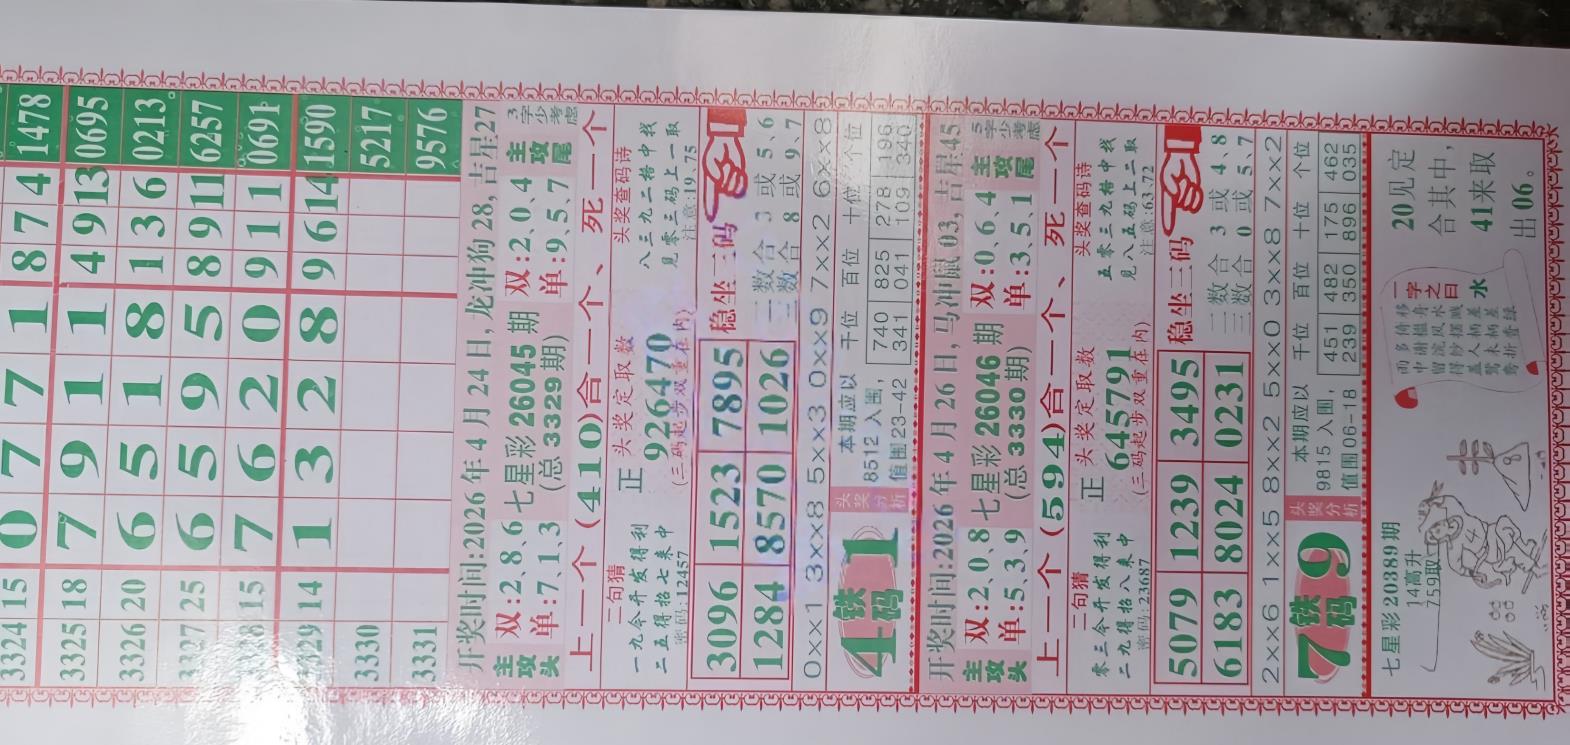 3324 15 0 7 7 1 8 7 4 1478
3325 18 7 9 1 1 4 9 13 0695
3326 20 6 5 1 8 1 3 6 0213
3327 25 6 5 9 5 8 9 11 6257
8 15 7 6 2 0 9 1 1 0691
329 14 1 3 2 8 9 6 14 1590
3330 5217
3331 9576
开奖时间:2026年4月24日,龙冲狗28,吉星27
主攻头 双:2、8、6 单:7、1、3
七星彩26045期
(总3329期)
双:2、0、4 单:9、5、7 主攻尾 3字少考虑
上一个(410)合一个、死一个
二句猜
一九今开发得利
二五得招七来中
密码:12457
正
头奖定取数
926470
(三码起步双重在内)
头奖查码诗
八三九二格中找
見零三码上一取
注意:19、75
3096 1523 7895
1284 8570 1026
稳坐三码
二数合 3 或 5、6
三数合 8 或 9、7
0xx1 3xx8 5xx3 0xx9 7xx2 6xx8
4铁码1
头奖分析
本期应以
8512入围,
值围23-42
千位 百位 十位 个位
740 825 278 196
341 041 109 340
开奖时间:2026年4月26日,马冲鼠03,吉星45
主攻头 双:2、0、8 单:5、3、9
七星彩26046期
(总3330期)
双:0、6、4 单:3、5、1 主攻尾 5字少考虑
上一个(594)合一个、死一个
二句猜
零三今开发得利
二九得招八来中
密码:23687
正
头奖定取数
645791
(三码起步双重在内)
头奖查码诗
五零三九格中找
見八五码上二取
注意:63、72
5079 1239 3495
6183 8024 0231
稳坐三码
二数合 3 或 4、8
三数合 0 或 5、7
2xx6 1xx5 8xx2 5xx0 3xx8 7xx2
7铁码9
头奖分析
本期应以
9815入围,
值围06-18
千位 百位 十位 个位
451 482 175 462
239 350 896 035
七星彩20389期
14高升
759取
一字之曰
水
20见定
合其中,
41来取
出06。